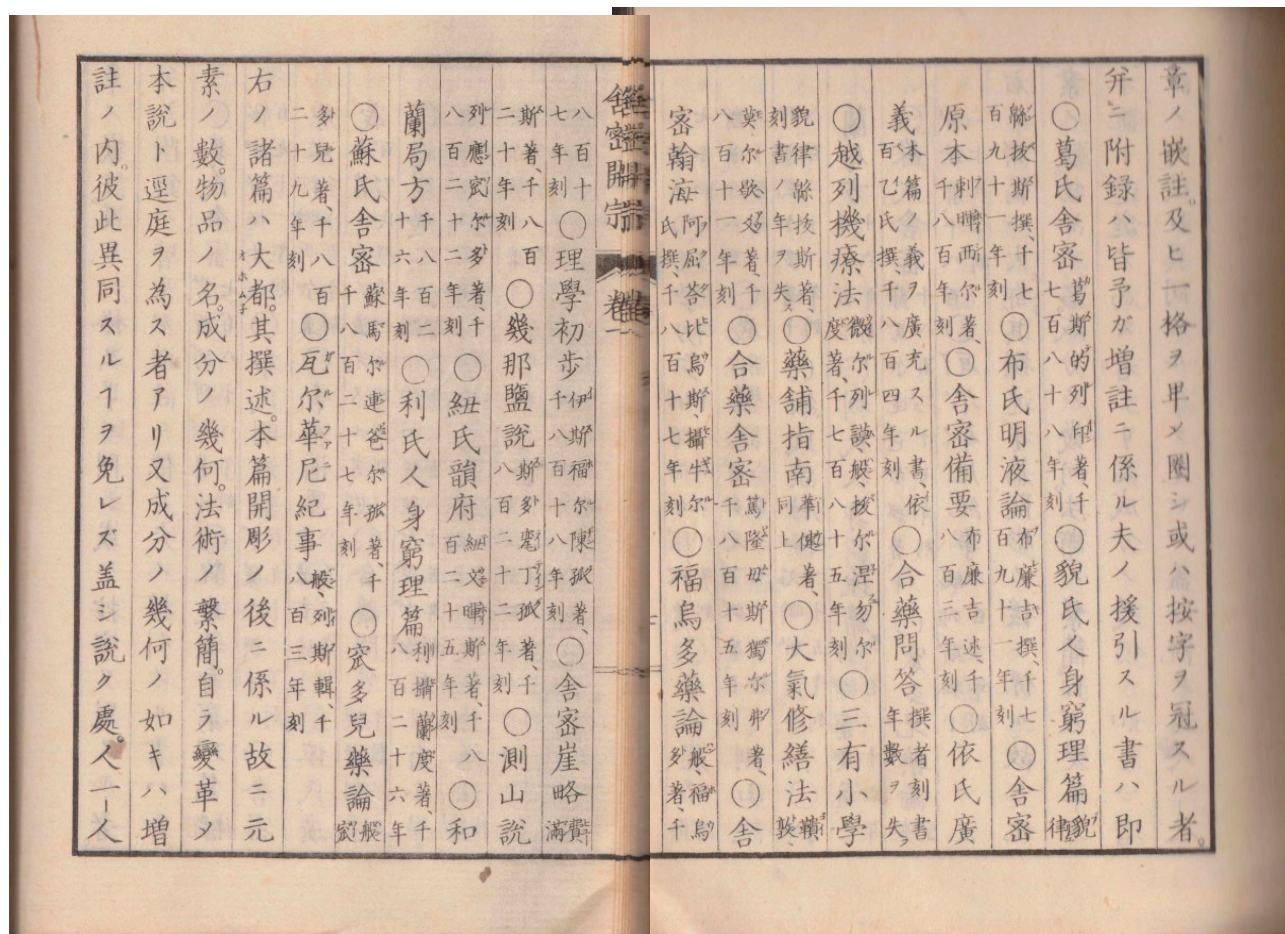 章ノ嵌註。及ヒ一格ヲ卑メ圈シ或ハ按字ヲ冠スル者。
幷ニ附録ハ皆予ガ増註ニ係ル夫ノ援引スル書ハ即
〇葛氏舎密葛斯的列印著、千七百八十八年刻〇貌氏人身窮理篇貌律
縣抜斯撰、千七百九十一年刻〇布氏明液論布廉吉撰、千七百九十一年刻〇舎密
原本刺暍西尔著、千八百年刻〇舎密備要布廉吉述、千八百三年刻〇依氏廣
義本篇ノ義ヲ廣充スル書、依百乙氏撰、千八百四年刻〇合藥問答撰者刻書年數ヲ失フ
〇越列機療法微尔列談、般、抜尔涅勿尔度著、千七百八十五年刻〇三有小學
貌律縣抜斯著、刻書ノ年ヲ失ス〇藥舗指南華僌著、同上〇大氣修繕法鞼敦、
莫尔歇奴著、千八百十一年刻〇合藥舎密篤隆毋斯獨尔弗著、千八百十五年刻〇舎
密翰海阿屈荅比烏斯、攝牛尔氏撰、千八百十七年刻〇福烏多藥論般、福烏多著、千
舎密開宗 卷一
八百十七年刻〇理學初歩伊斯福尔陳孤著、千八百十八年刻〇舎密崖略費滿
斯著、千八百二十年刻〇幾那鹽説斯多毫丁孤著、千八百二十二年刻〇測山説
列應宻尔多著、千八百二十二年刻〇紐氏韻府紐文暍斯著、千八百二十五年刻〇和
蘭局方千八百二十六年刻〇利氏人身窮理篇利攝蘭度著、千八百二十六年
〇蘇氏舎密蘇馬尔連爸尔孤著、千八百二十七年刻〇宻多兒藥論般宻
多兒著、千八百二十九年刻〇瓦尔華尼紀事般、列斯輯、千八百三年刻
右ノ諸篇ハ大都。其撰述。本篇開彫ノ後ニ係ル故ニ元
素ノ數。物品ノ名。成分ノ幾何。法術ノ繁簡。自ラ變革メ
本説ト逕庭ヲ為ス者アリ又成分ノ幾何ノ如キハ増
註ノ内。彼此異同スルヿヲ免レズ蓋シ説ク處。人一人